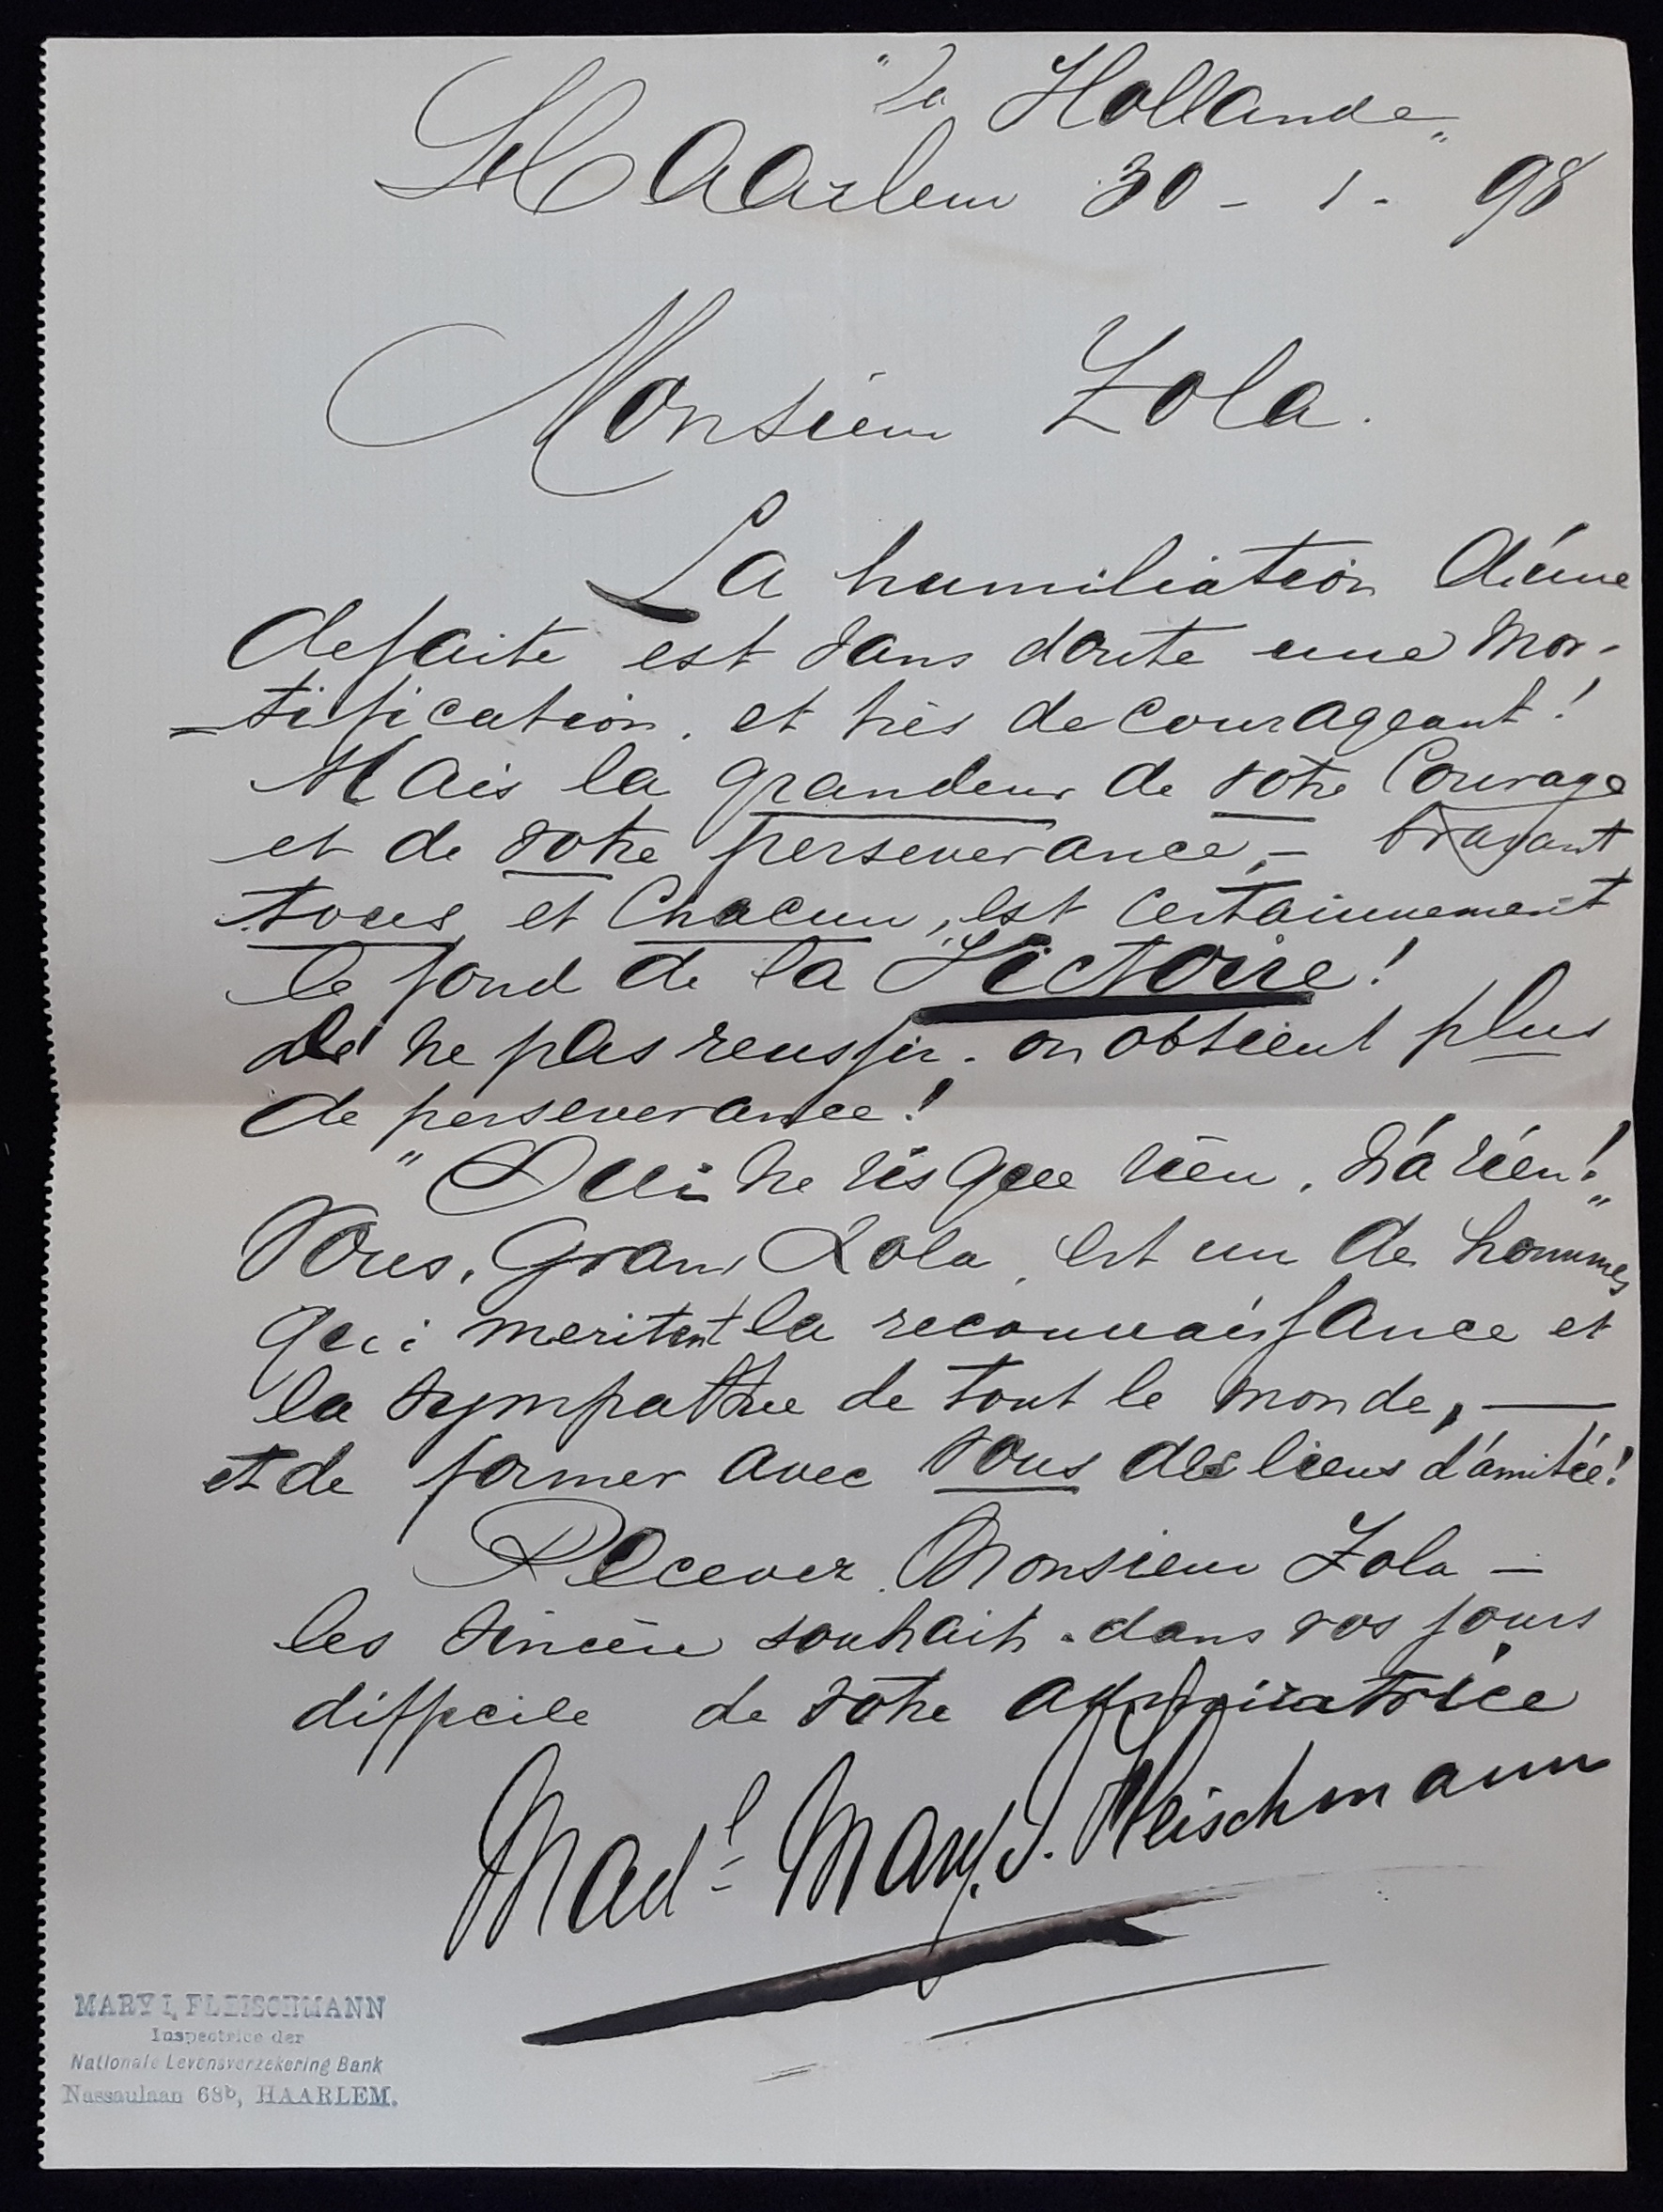 "La Hollande"
Haarlem 30 - 1 - 98
Monsieur Zola.
La humiliation d'une
defaite est sans doute une mor-
=tification, et très decourageant!
Mais la grandeur de votre Courage
et de votre perseverance, - bravant
tous et chacun, est certainnement
le fond de la "Victoire!
De ne pas reussir. on obtient plus
de perseverance!
"Qui ne risque rien, n'a rien!"
Vous, Grand Zola, est un des hommes
qui meritent la reconnaissance et
la sympathie de tout le monde, —
et de former avec vous des liens d'amitié!
Recevez Monsieur Zola -
les sincère souhaits dans vos jours
difficile de votre
Madl Mary I. Fleischmann
MARY I. FLEISCHMANN
Inspectrice der
Nationale Levensverzekering Bank
Nassaulaan 68b, HAARLEM.